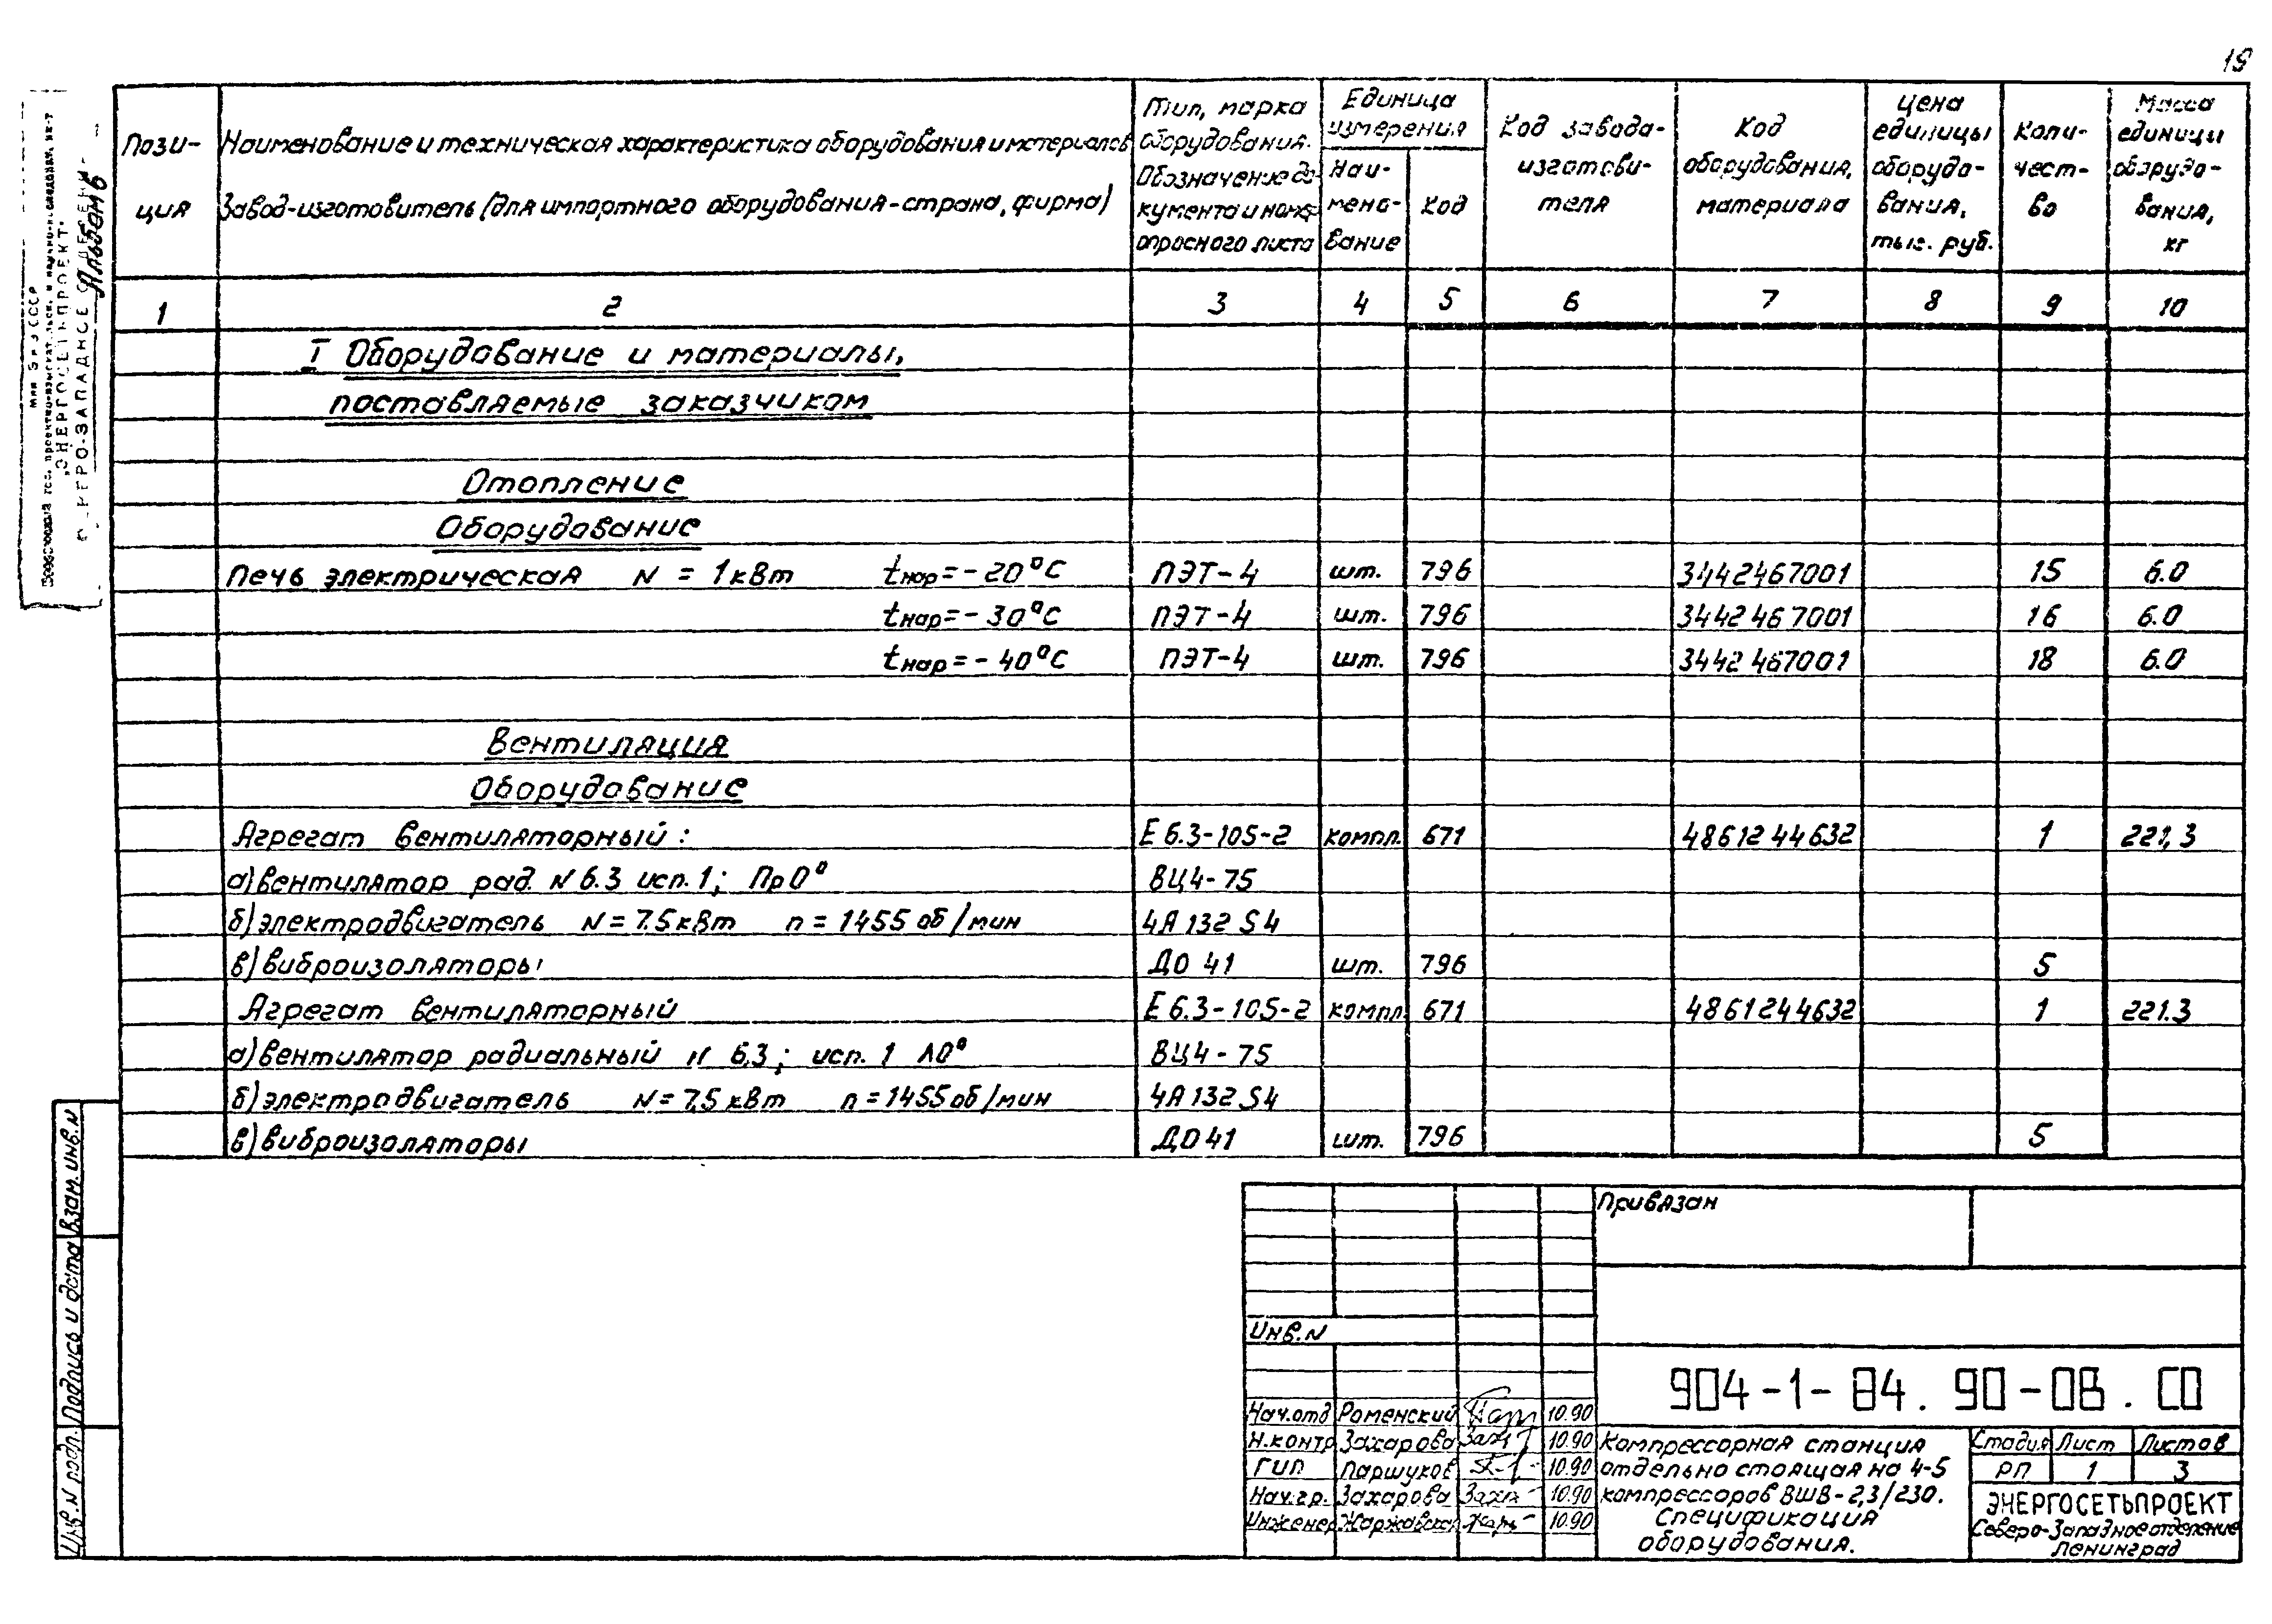 19
Альбом 6
Мин Э и Э СССР
"ЭНЕРГОСЕТЬПРОЕКТ"
Пози-
ция
Наименование и техническая характеристика оборудования и материалов
Завод-изготовитель (для импортного оборудования-страна, фирма)
Тип, марка
оборудования.
Обозначение до-
кумента и номер
опросного листа
Единица
измерения
Наи-
мено-
вание
Код
Код завода-
изготови-
теля
Код
оборудования,
материала
Цена
единицы
оборудо-
вания,
тыс. руб.
Коли-
чест-
во
Масса
единицы
оборудо-
вания,
кг
1 2 3 4 5 6 7 8 9 10
I Оборудование и материалы,
поставляемые заказчиком
Отопление
Оборудование
Печь электрическая N = 1 кВт tнар=-20°С ПЭТ-4 шт. 796 3442467001 15 6.0
tнар=-30°С ПЭТ-4 шт. 796 3442467001 16 6.0
tнар=-40°С ПЭТ-4 шт. 796 3442467001 18 6.0
Вентиляция
Оборудование
Агрегат вентиляторный: Е 6.3-105-2 компл. 671 4861244632 1 221,3
а) вентилятор рад. N 6.3 исп. 1; Пр0° ВЦ4-75
б) электродвигатель N = 7.5 кВт n = 1455 об/мин 4А132S4
в) виброизоляторы ДО 41 шт. 796 5
Агрегат вентиляторный Е 6.3-105-2 компл. 671 4861244632 1 221.3
а) вентилятор радиальный N 6,3; исп. 1 Л0° ВЦ4-75
б) электродвигатель N = 7,5 кВт n = 1455 об/мин 4А132S4
в) виброизоляторы ДО 41 шт. 796 5
Взам. инв. N
Подпись и дата
Инв. N подл.
Привязан
Инв. N
904-1-84.90-ОВ.СО
Нач.отд Роменский 10.90
Н.контр Захарова 10.90
ГИП Паршуков 10.90
Нач.гр. Захарова 10.90
Инженер 10.90
Компрессорная станция
отдельно стоящая на 4-5
компрессоров ВШВ-2,3/230.
Спецификация
оборудования.
Стадия Лист Листов
РП 1 3
ЭНЕРГОСЕТЬПРОЕКТ
Северо-Западное отделение
Ленинград